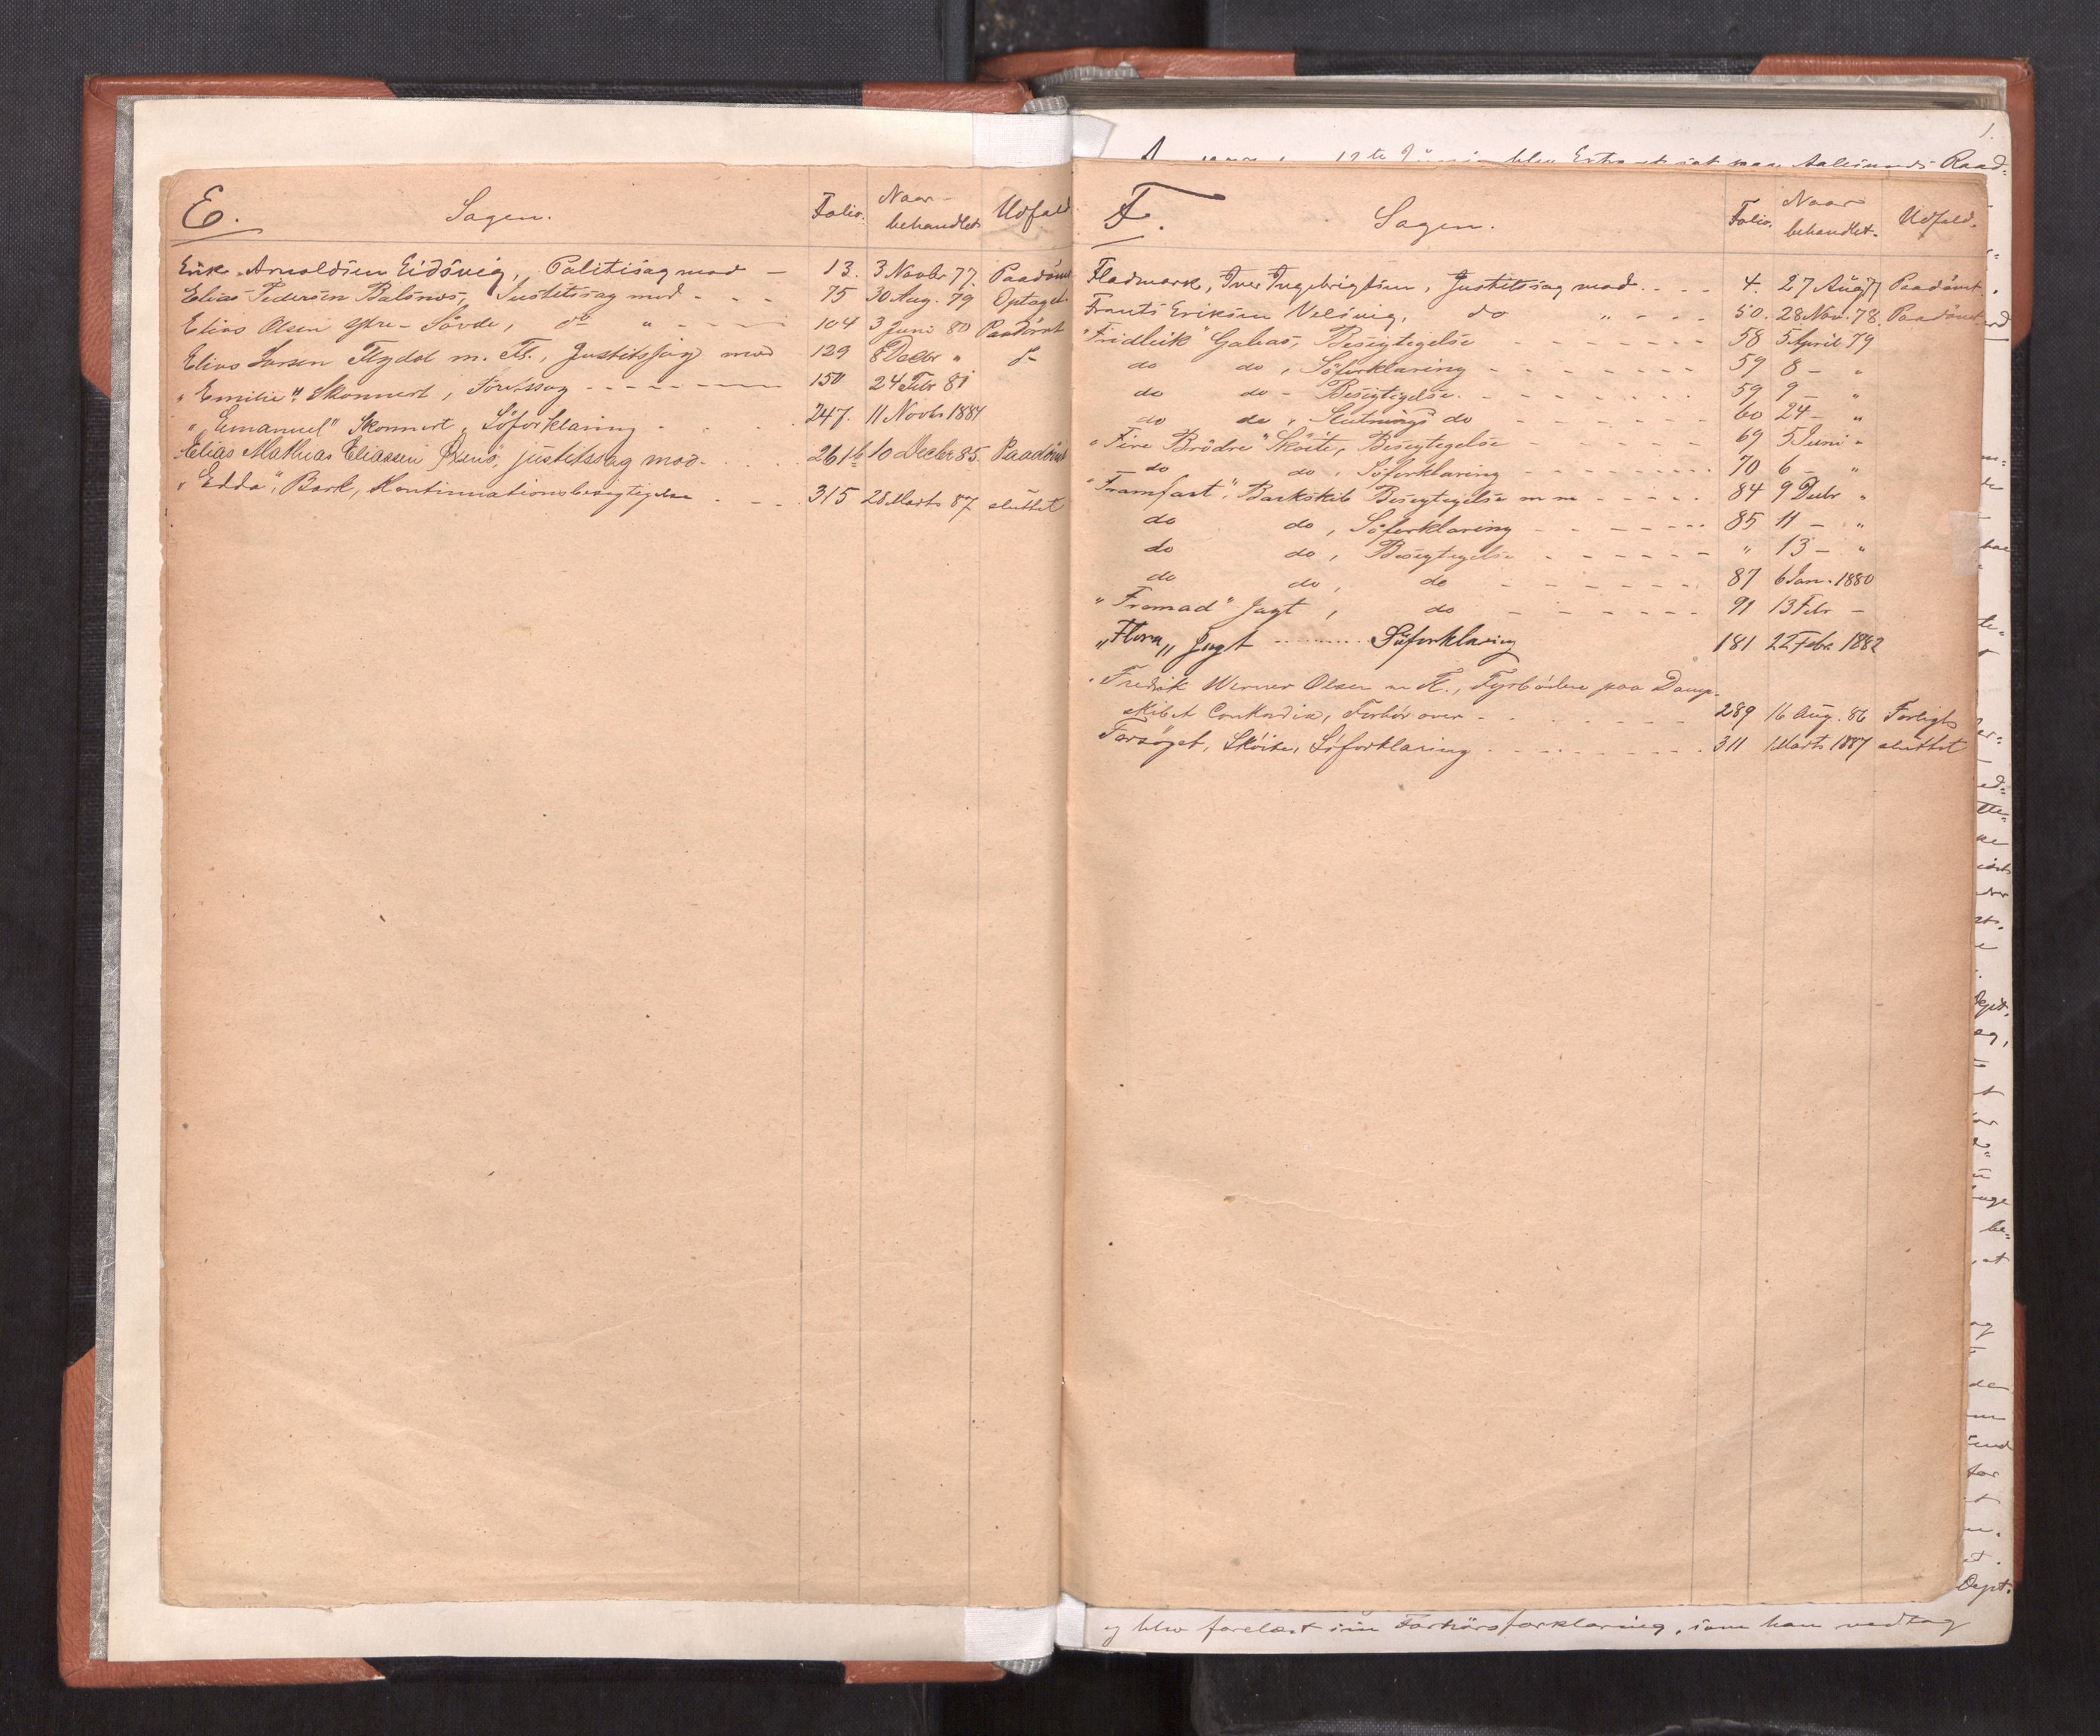 E. Sagen. Folio. Naar behandlet Udfald
Erik Arnoldsen Eidsvig, Politisag mod - 13. 3 Novbr 77. Paadömt
Elias Pedersen Balsnes, Justitssag mod - - - 75 30 Aug. 79 Optaget
Elias Olsen Ytre-Sövde, do " - - - 104 3 Juni 80 Paadömt
Elias Larsen Flydal m. Fl., Justitssag mod 129 8 Decbr " do
"Emilie", Skonnert, - - - - - 150 24 Febr 81
"Emanuel" Skonnert, Söforklaring - . . . . 247. 11 Novbr 1884
Elias Mathias Eliassen justitssag mod. . . . . 261b 10 Decbr 85. Paadömt
"Edda", Bark, Kontinuationsbesigtigelse . - - 315 28 Marts 87 sluttet
1.
12te Juni blev Extraret sat paa Aalesunds Raad-
F. Sagen. Folio. Naar behandlet. Udfald.
Fladmark, Iver Ingebrigtsen, Justitssag mod. - - - 4. 27 Aug 77 Paadömt.
Frants Eriksen Velsvig, do " - - - 50. 28 Nov. 78. Paadömt
"Fridleik" Galeas, Besigtigelse - - - - - - 58 5 April 79
do do, Söforklaring - - - - - - 59 8 - "
do do - Besigtigelse. - - - - - - 59 9 - "
do do, Slutnings do - - - - - - 60 24 - "
"Fire Brödre" Sköite, Besigtigelse - - - - - 69 5 Juni -
do do, Söforklaring - - - - - - 70 6 - "
"Framfart", Barkskib Besigtigelse m m - - - - - 84 9 Decbr "
do do, Söforklaring - - - - - - 85 11 - "
do do, Besigtigelse - - - - - - " 13 - "
do do, do - - - - - - 87 6 Jan. 1880
"Fromad" Jagt, do - - - - - - 91 13 Febr -
"Flora" Jagt ......... Söforklaring 181 22 Febr. 1882
Fredrik Werner Olsen m Fl., Fyrbödere paa Damp-
skibet Conkordia, Forhör over - . . . . . - - 289 16 Aug. 86 Forligt
Forsöget, Sköite, Söforklaring - - - - - - 311 1 Marts 1887 sluttet
og blev forelæst sin Forhörsforklaring, som han vedtog